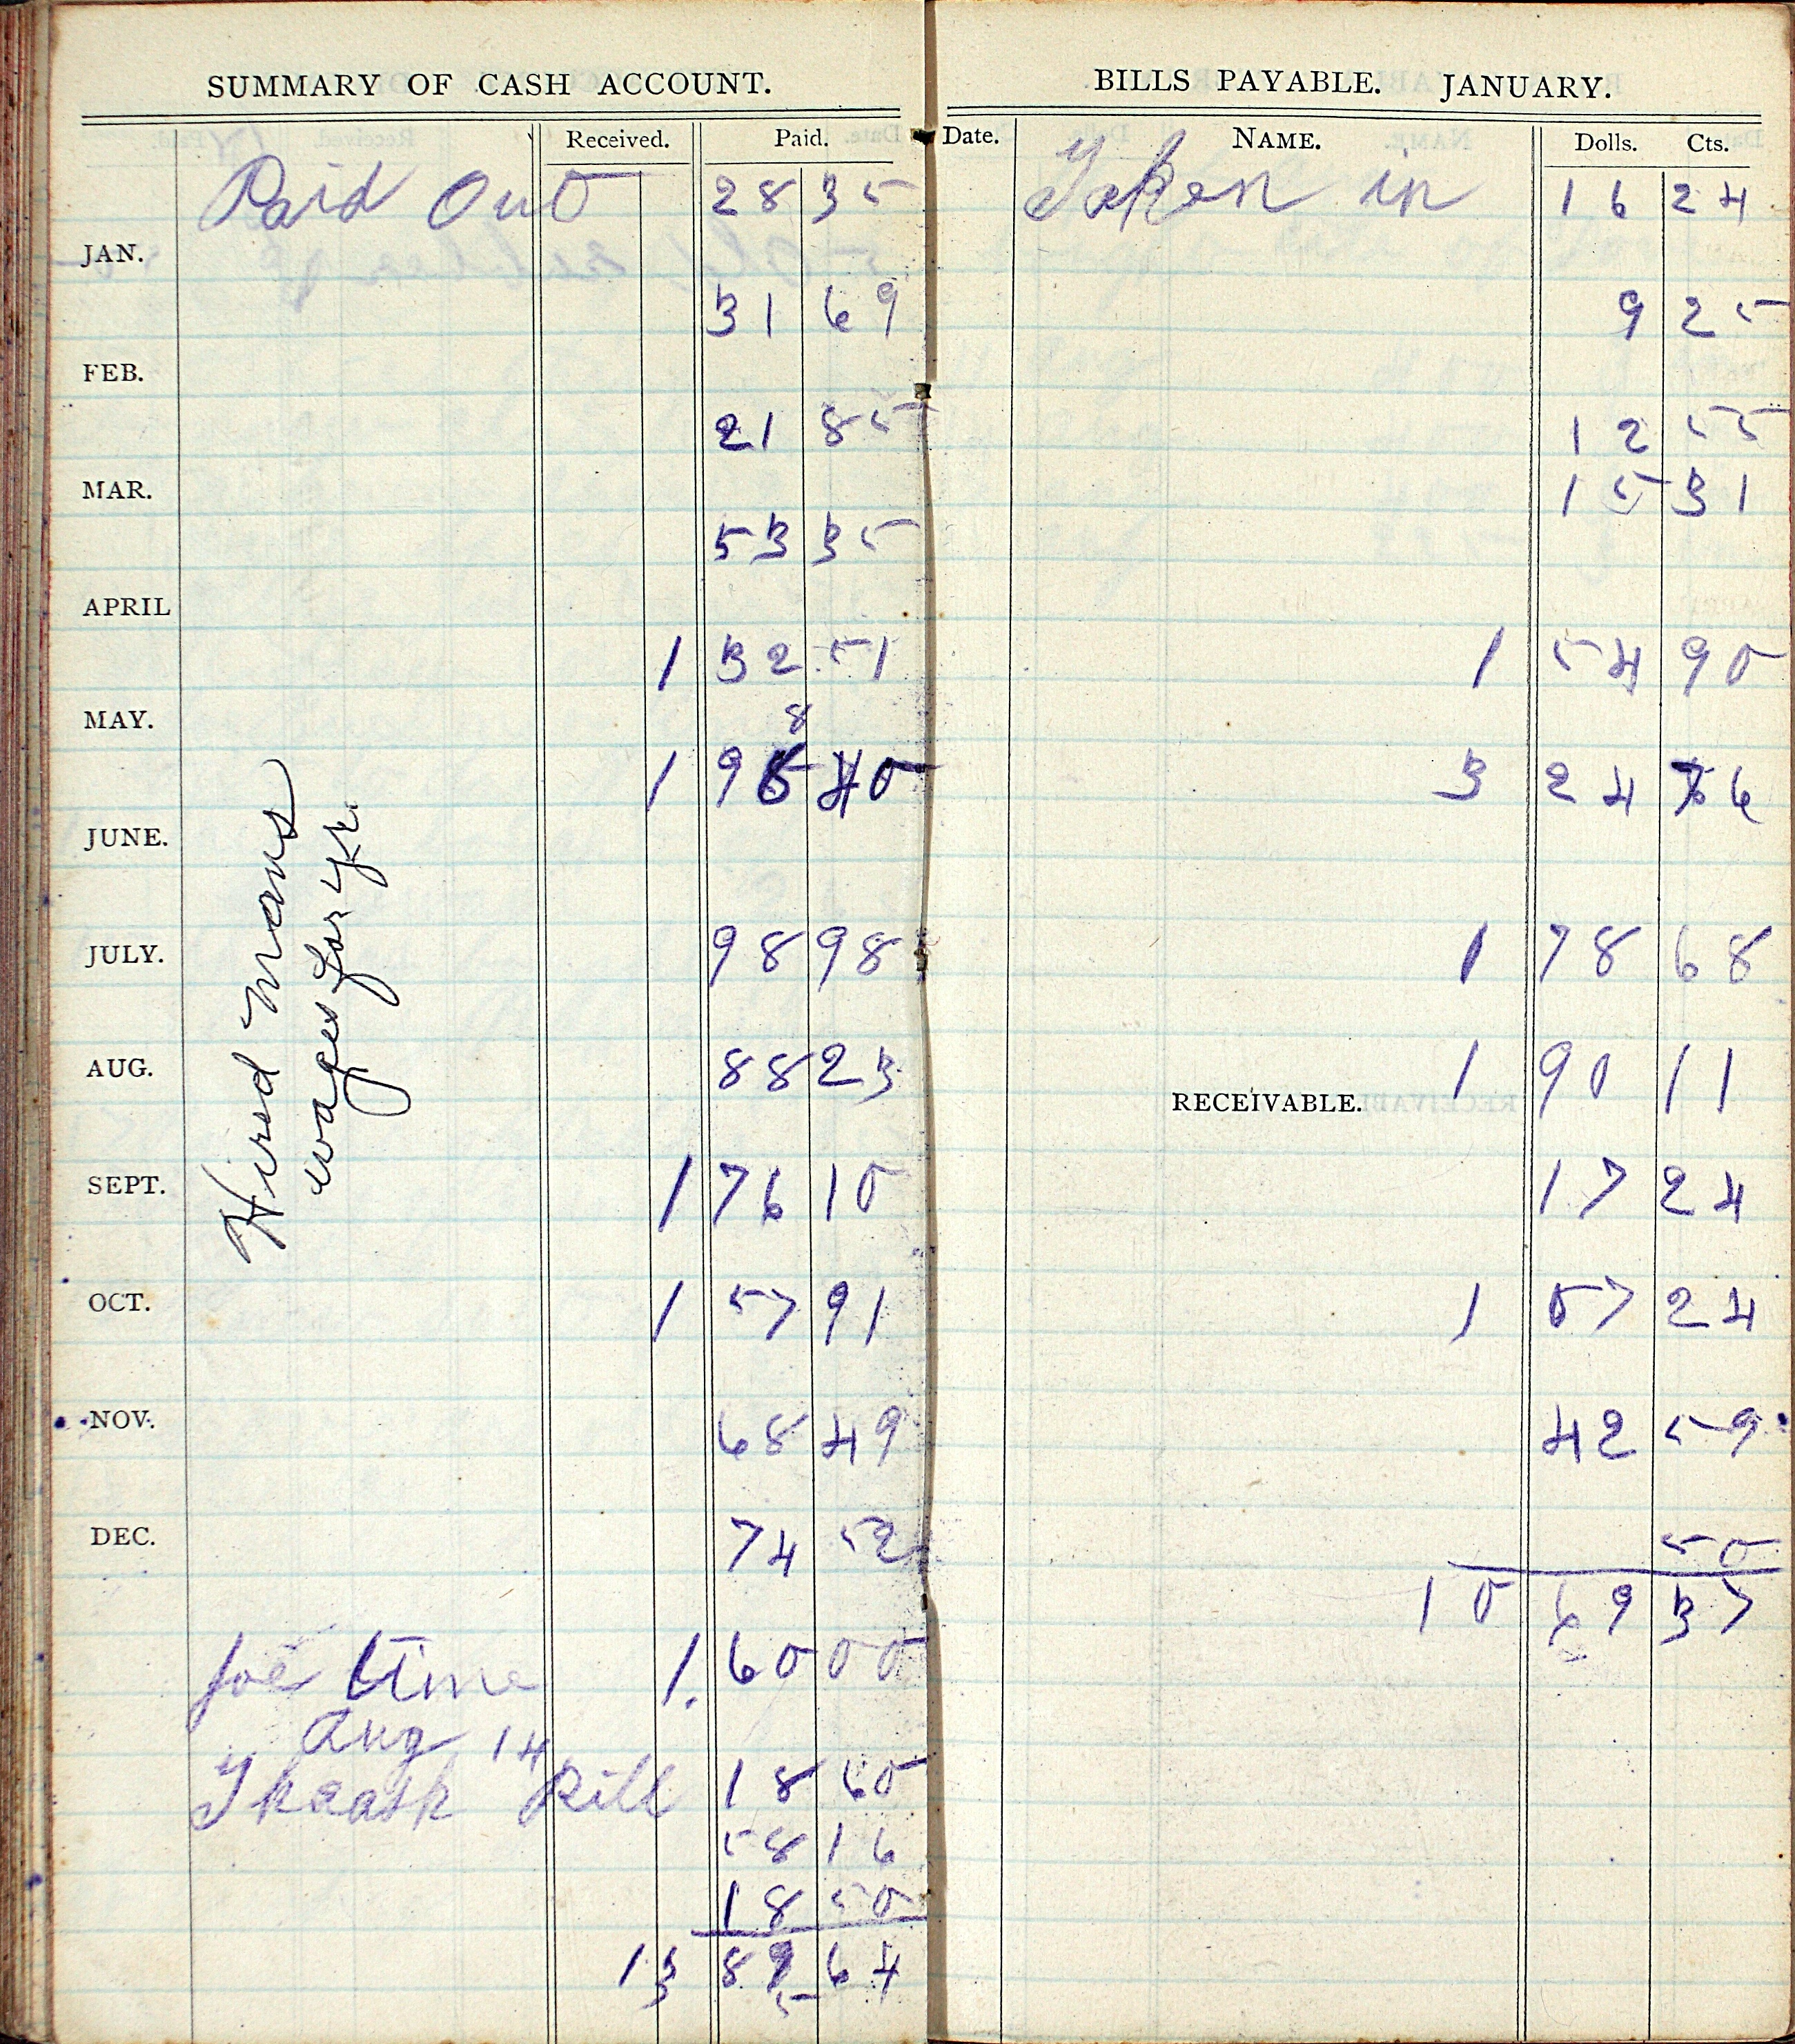 SUMMARY OF CASH ACCOUNT.
Received. Paid.
Paid Out 28 35
JAN.
31 69
FEB.
21 85
MAR.
53 35
APRIL
1 32 51
MAY.
8
1 96 40
JUNE.
Hired Mans
wages for yr.
JULY. 98 98
AUG. 88 23
SEPT. 1 76 10
OCT. 1 57 91
NOV. 68 49
DEC. 74 52
Joe time 1. 60 00
Aug 14
Thrash Bill 18 60
58 16
18 50
13 89 64
5
BILLS PAYABLE. JANUARY.
Date. NAME. Dolls. Cts.
Taken in 16 24
9 25
12 55
15 31
1 54 90
3 24 76
1 78 68
1 90 11
RECEIVABLE.
17 24
1 07 24
42 59
50
10 69 37